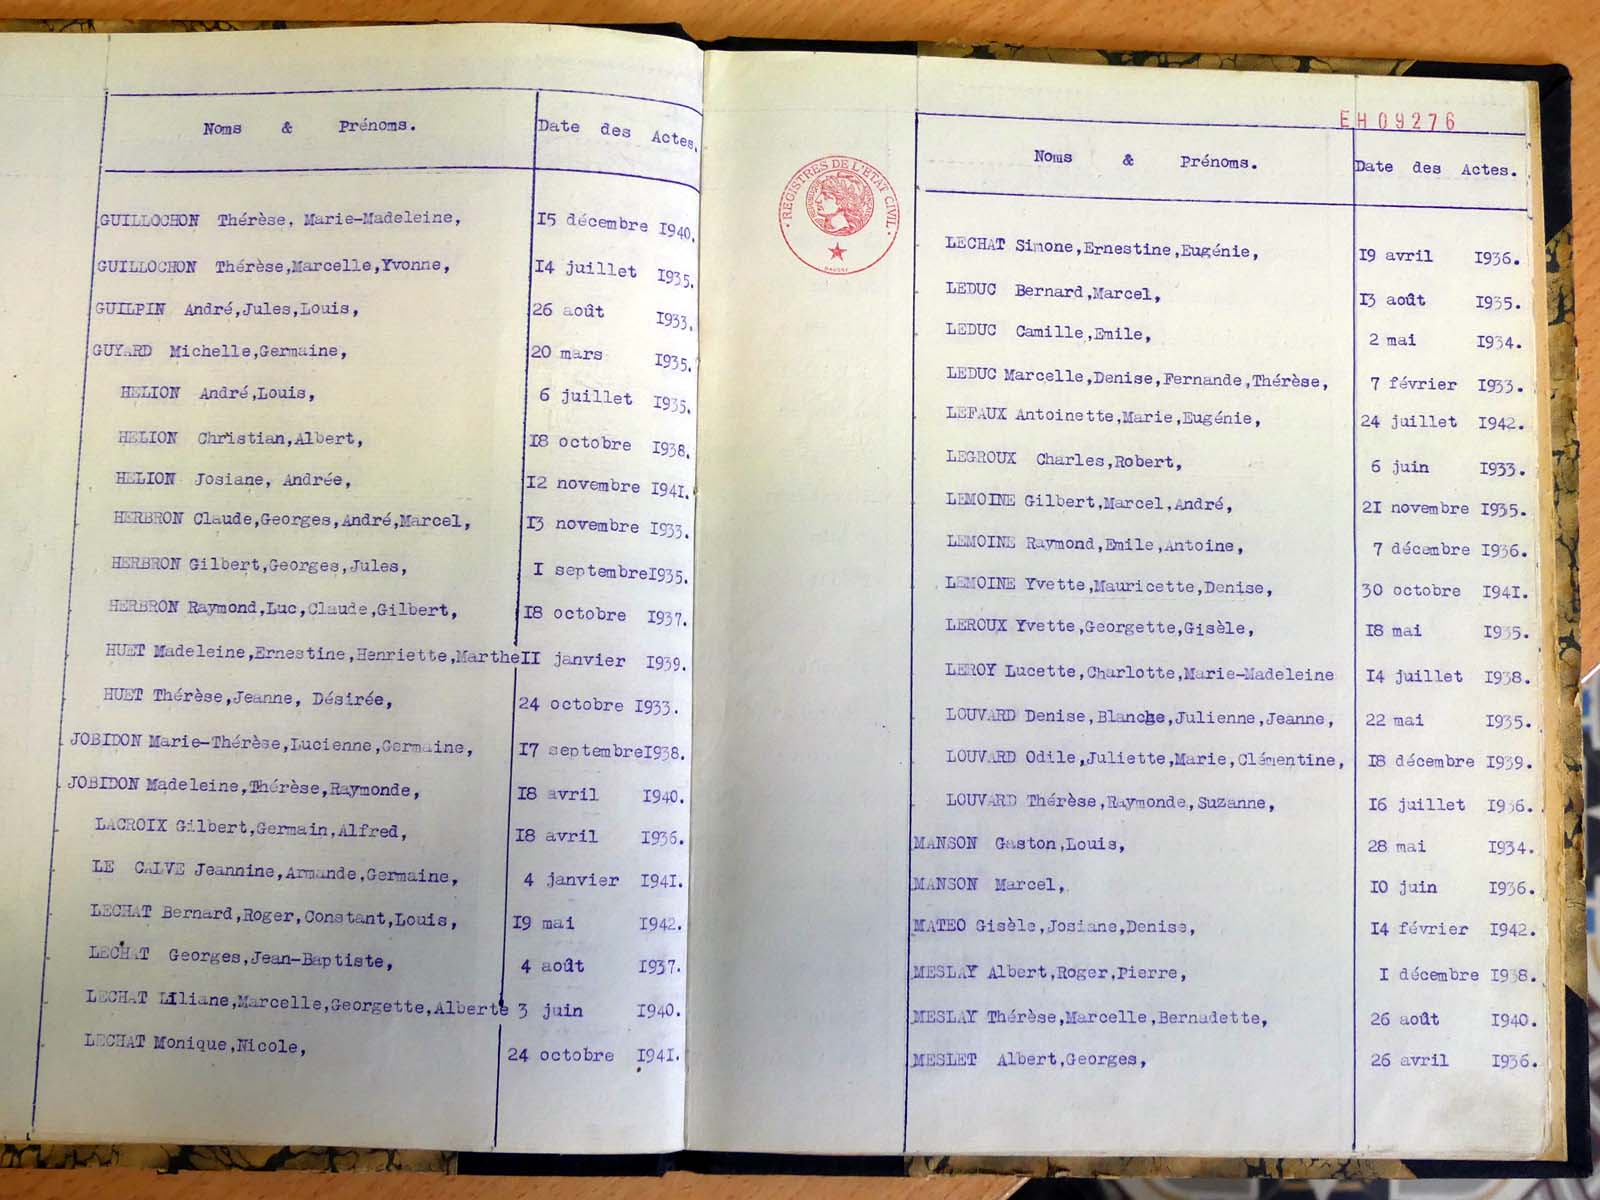 Noms & Prénoms. Date des Actes.
GUILLOCHON Thérèse, Marie-Madeleine, 15 décembre 1940.
GUILLOCHON Thérèse,Marcelle,Yvonne, 14 juillet 1935.
GUILPIN André,Jules,Louis, 26 août 1933.
GUYARD Michelle,Germaine, 20 mars 1935.
HELION André,Louis, 6 juillet 1935.
HELION Christian,Albert, 18 octobre 1938.
HELION Josiane, Andrée, 12 novembre 1941.
HERBRON Claude,Georges,André,Marcel, 13 novembre 1933.
HERBRON Gilbert,Georges,Jules, 1 septembre1935.
HERBRON Raymond,Luc,Claude,Gilbert, 18 octobre 1937.
HUET Madeleine,Ernestine,Henriette,Marthe 11 janvier 1939.
HUET Thérèse,Jeanne, Désirée, 24 octobre 1933.
JOBIDON Marie-Thérèse,Lucienne,Germaine, 17 septembre1938.
JOBIDON Madeleine,Thérèse,Raymonde, 18 avril 1940.
LACROIX Gilbert,Germain,Alfred, 18 avril 1936.
LE CALVE Jeannine,Armande,Germaine, 4 janvier 1941.
LECHAT Bernard,Roger,Constant,Louis, 19 mai 1942.
LECHAT Georges,Jean-Baptiste, 4 août 1937.
LECHAT Liliane,Marcelle,Georgette,Alberte 3 juin 1940.
LECHAT Monique,Nicole, 24 octobre 1941.
REGISTRES DE L'ETAT CIVIL
EH09276
Noms & Prénoms. Date des Actes.
LECHAT Simone,Ernestine,Eugénie, 19 avril 1936.
LEDUC Bernard,Marcel, 13 août 1935.
LEDUC Camille,Emile, 2 mai 1934.
LEDUC Marcelle,Denise,Fernande,Thérèse, 7 février 1933.
LEFAUX Antoinette,Marie,Eugénie, 24 juillet 1942.
LEGROUX Charles,Robert, 6 juin 1933.
LEMOINE Gilbert,Marcel,André, 21 novembre 1935.
LEMOINE Raymond,Emile,Antoine, 7 décembre 1936.
LEMOINE Yvette,Mauricette,Denise, 30 octobre 1941.
LEROUX Yvette,Georgette,Gisèle, 18 mai 1935.
LEROY Lucette,Charlotte,Marie-Madeleine 14 juillet 1938.
LOUVARD Denise,Blanche,Julienne,Jeanne, 22 mai 1935.
LOUVARD Odile,Juliette,Marie,Clémentine, 18 décembre 1939.
LOUVARD Thérèse,Raymonde,Suzanne, 16 juillet 1936.
MANSON Gaston,Louis, 28 mai 1934.
MANSON Marcel, 10 juin 1936.
MATEO Gisèle,Josiane,Denise, 14 février 1942.
MESLAY Albert,Roger,Pierre, 1 décembre 1938.
MESLAY Thérèse,Marcelle,Bernadette, 26 août 1940.
MESLET Albert,Georges, 26 avril 1936.